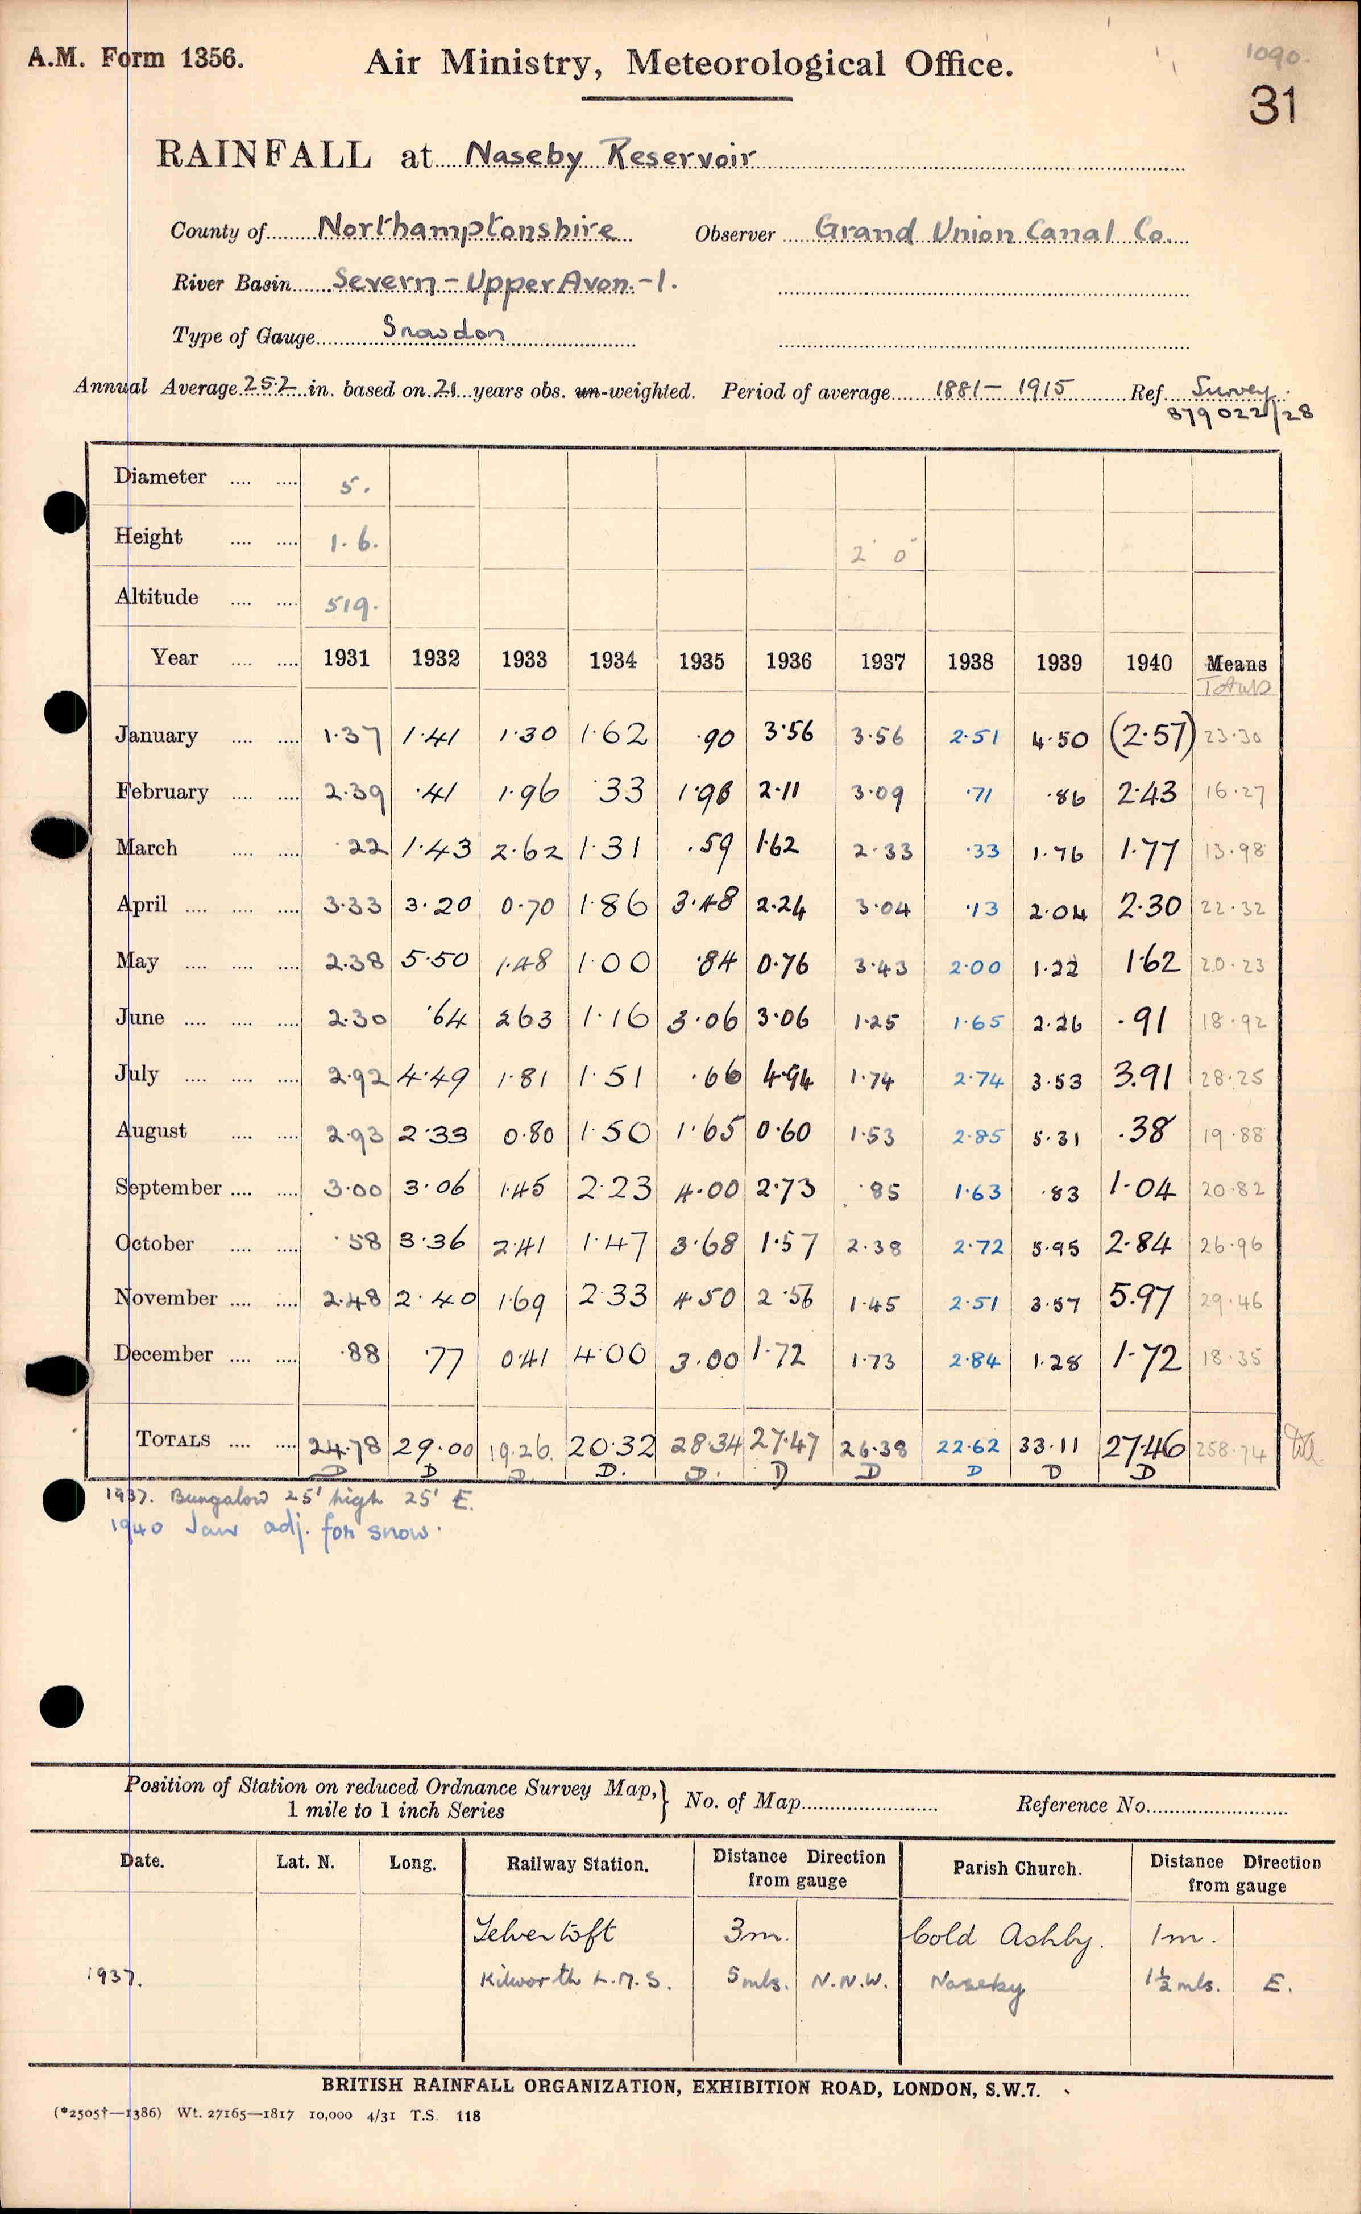 A.M. Form 1356.
Air Ministry, Meteorological Office.
1090.
31
RAINFALL at Naseby Reservoir
County of Northamptonshire Observer Grand Union Canal Co.
River Basin Severn - Upper Avon. - 1.
Type of Gauge Snowdon
Annual Average 25.2 in. based on 21 years obs. un-weighted. Period of average 1881 - 1915 Ref. Survey
879022/28
Diameter 5.
Height 1.6. 2' 0"
Altitude 519.
Year 1931 1932 1933 1934 1935 1936 1937 1938 1939 1940 Means
Totals
January 1.37 1.41 1.30 1.62 .90 3.56 3.56 2.51 4.50 (2.57) 23.30
February 2.39 .41 1.96 .33 1.98 2.11 3.09 .71 .86 2.43 16.27
March .22 1.43 2.62 1.31 .59 1.62 2.33 .33 1.76 1.77 13.98
April 3.33 3.20 0.70 1.86 3.48 2.24 3.04 .13 2.04 2.30 22.32
May 2.38 5.50 1.48 1.00 .84 0.76 3.43 2.00 1.22 1.62 20.23
June 2.30 .64 2.63 1.16 3.06 3.06 1.25 1.65 2.26 .91 18.92
July 2.92 4.49 1.81 1.51 .66 4.94 1.74 2.74 3.53 3.91 28.25
August 2.93 2.33 0.80 1.50 1.65 0.60 1.53 2.85 5.31 .38 19.88
September 3.00 3.06 1.45 2.23 4.00 2.73 .85 1.63 .83 1.04 20.82
October .58 3.36 2.41 1.47 3.68 1.57 2.38 2.72 5.95 2.84 26.96
November 2.48 2.40 1.69 2.33 4.50 2.56 1.45 2.51 3.57 5.97 29.46
December .88 .77 0.41 4.00 3.00 1.72 1.73 2.84 1.28 1.72 18.35
TOTALS 24.78 29.00 19.26. 20.32 28.34 27.47 26.38 22.62 33.11 27.46 258.74
D D D. D. D. D D D D D
1937. Bungalow 25' high 25' E.
1940 Jan adj. for snow.
Position of Station on reduced Ordnance Survey Map, } No. of Map Reference No.
1 mile to 1 inch Series
Date. Lat. N. Long. Railway Station. Distance Direction Parish Church. Distance Direction
from gauge from gauge
Yelvertoft 3m. Cold Ashby. 1m.
1937. Kilworth L.M.S. 5 mls. N.N.W. Naseby 1½ mls. E.
BRITISH RAINFALL ORGANIZATION, EXHIBITION ROAD, LONDON, S.W.7.
(*2505†—1386) Wt. 27165—1817 10,000 4/31 T.S. 118